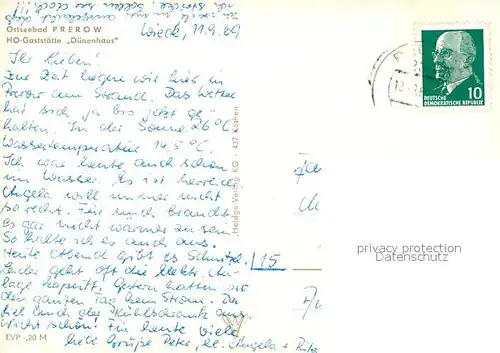 Ostseebad PREROW
HO-Gaststätte „Dünenhaus"
Wieck, 11.9.69
Ihr Lieben!
Zur Zeit liegen wir hier in
Prerow am Strand. Das Wetter
hat sich ja bis jetzt ge-
halten. In der Sonne 26°C
Wassertemperatur 14,5°C.
Ich war heute auch schon
im Wasser. Es ist herrlich
Angela will immer nicht
so recht. Für mich braucht
es gar nicht wärmer zu sein.
So halte ich es auch aus.
Heute Abend gibt es Schnitzel.
Leider geht oft die Elektr. An-
lage kaputt. Gestern hatten wir
den ganzen Tag kein Strom. Da
fiel auch der Kühlschrank aus.
Nicht schön! Für heute viele
liebe Grüße Peter, Angela + Rita
EVP -,20 M
Heldge-Verlag KG · 437 Köthen
DEUTSCHE
DEMOKRATISCHE REPUBLIK
10
15
privacy protection
Datenschutz